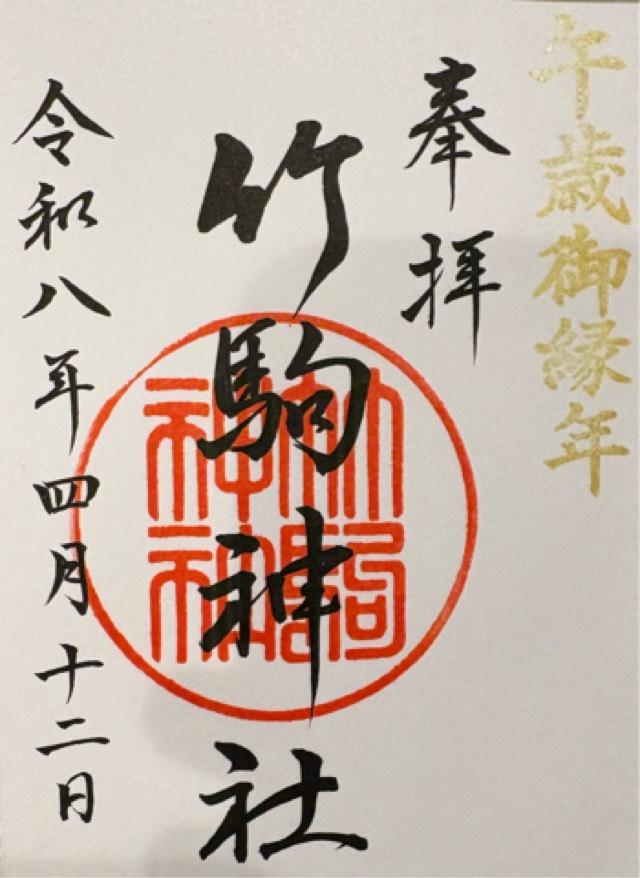 午歳御縁年
奉拝
竹駒神社
竹駒神社
令和八年四月十二日